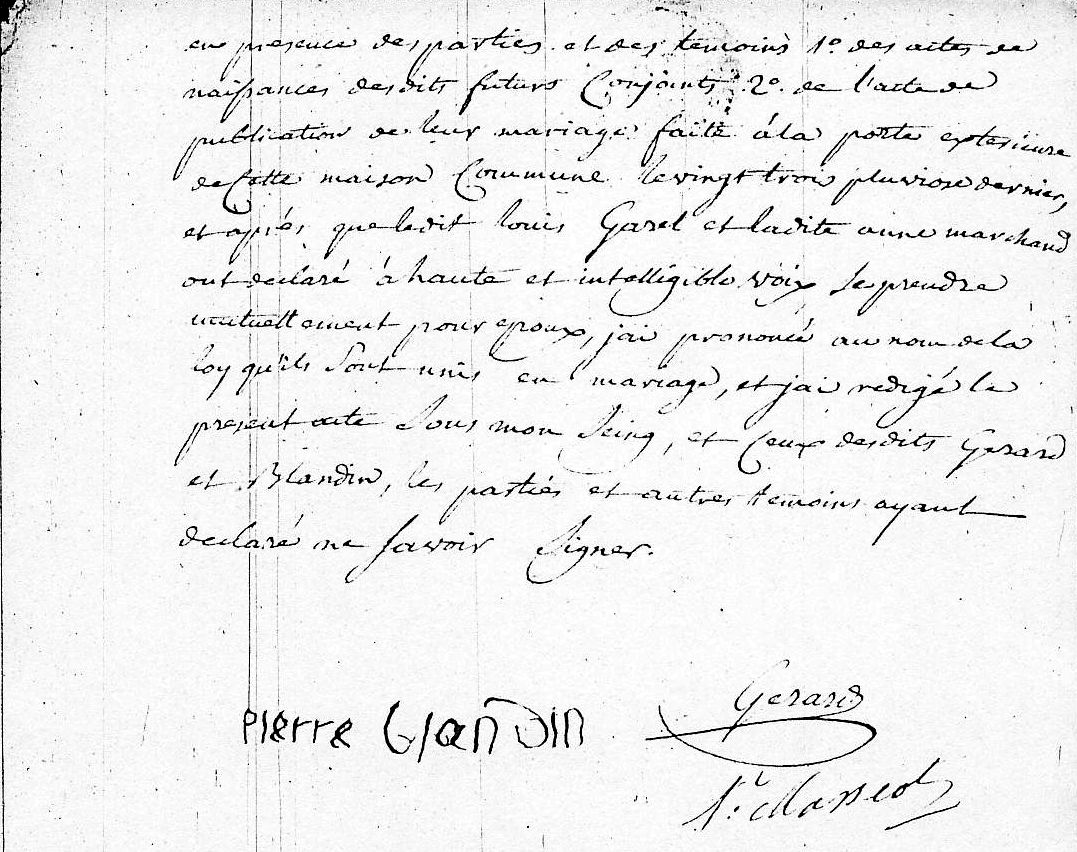 en presence des parties. et des temoins 1º. des actes de
naissances desdits futurs Conjoints 2º. de l'acte de
publication de leur mariage faite à la porte exterieure
de Cette maison Commune le vingt trois pluviose dernier,
et après que ledit louis Garel et ladite anne marchand
ont declaré à haute et intelligible voix se prendre
mutuellement pour epoux, jai prononcé au nom de la
loy qu'ils Sont unis en mariage, et jai redigé le
present acte Sous mon Seing, et Ceux desdits Gerard
et Blandin, les parties et autres temoins ayant
declaré ne savoir Signer.
Gerard
pierre blandin